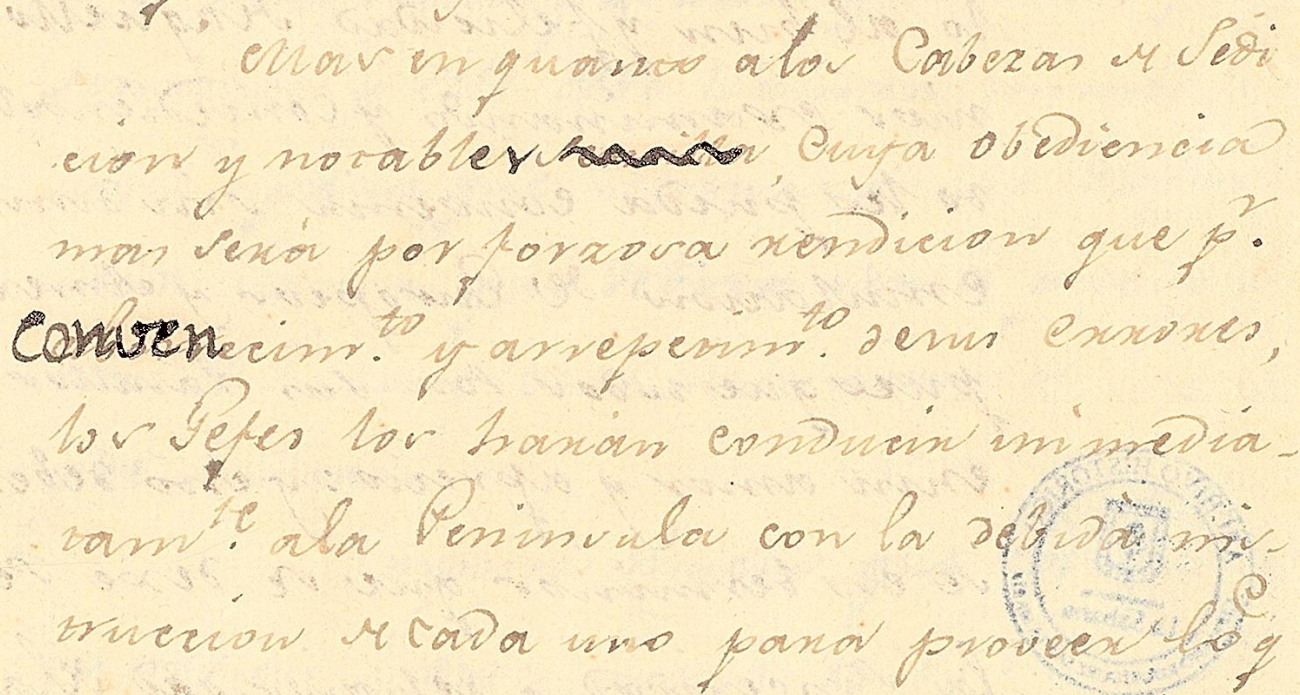 Mas en quanto a los Cabezas de Sedi
cion y notables, cuya obediencia
mas será por forzosa rendicion que pr.
Convencimto. y arrepentimto. de sus errores,
los Gefes los harán conducir inmedia-
tamte. a la Peninsula con la debida ins-
truccion de cada uno para proveer lo q